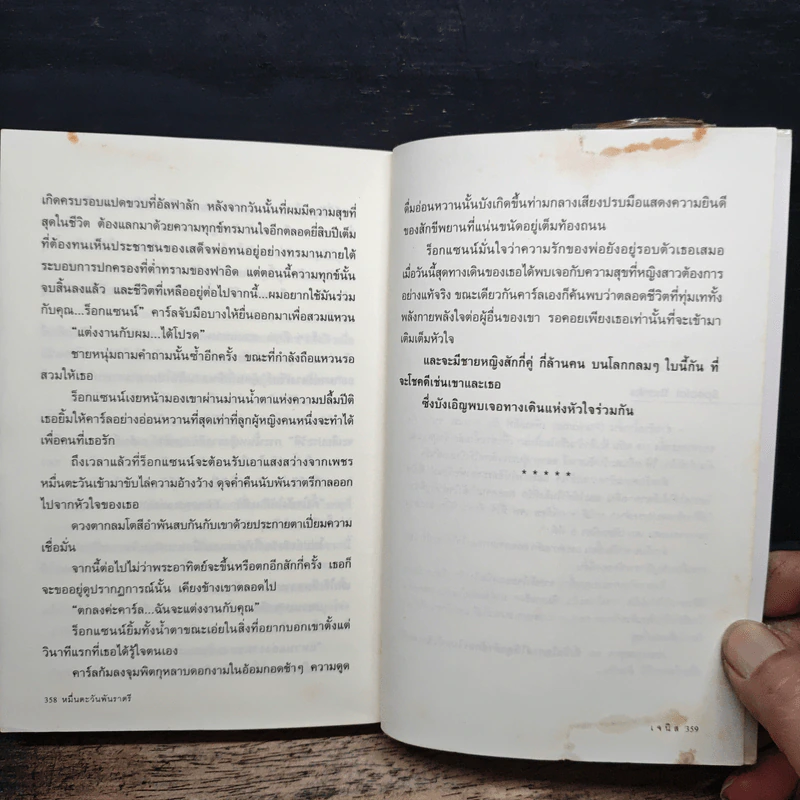 เกิดครบรอบแปดขวบที่อัลฟาลัก หลังจากวันนั้นที่ผมมีความสุขที่
สุดในชีวิต ต้องแลกมาด้วยความทุกข์ทรมานใจอีกตลอดยี่สิบปีเต็ม
ที่ต้องทนเห็นประชาชนของเสด็จพ่อทนอยู่อย่างทรมานภายใต้
ระบอบการปกครองที่ต่ำทรามของฟาอิด แต่ตอนนี้ความทุกข์นั้น
จบสิ้นลงแล้ว และชีวิตที่เหลืออยู่ต่อไปจากนี้...ผมอยากใช้มันร่วม
กับคุณ...ร็อกแซนน์” คาร์ลจับมือบางให้ยื่นออกมาเพื่อสวมแหวน
“แต่งงานกับผม...ได้โปรด”
ชายหนุ่มถามคำถามนั้นซ้ำอีกครั้ง ขณะที่กำลังถือแหวนรอ
สวมให้เธอ
ร็อกแซนน์เงยหน้ามองเขาผ่านม่านน้ำตาแห่งความปลื้มปีติ
เธอยิ้มให้คาร์ลอย่างอ่อนหวานที่สุดเท่าที่ลูกผู้หญิงคนหนึ่งจะทำได้
เพื่อคนที่เธอรัก
ถึงเวลาแล้วที่ร็อกแซนน์จะต้อนรับเอาแสงสว่างจากเพชร
หมื่นตะวันเข้ามาขับไล่ความอ้างว้าง ดุจค่ำคืนนับพันราตรีกาลออก
ไปจากหัวใจของเธอ
ดวงตากลมโตสีอำพันสบกันกับเขาด้วยประกายตาเปี่ยมความ
เชื่อมั่น
จากนี้ต่อไปไม่ว่าพระอาทิตย์จะขึ้นหรือตกอีกสักกี่ครั้ง เธอก็
จะขออยู่ดูปรากฏการณ์นั้น เคียงข้างเขาตลอดไป
“ตกลงค่ะคาร์ล...ฉันจะแต่งงานกับคุณ”
ร็อกแซนน์ยิ้มทั้งน้ำตาขณะเอ่ยในสิ่งที่อยากบอกเขาตั้งแต่
วินาทีแรกที่เธอได้รู้ใจตนเอง
คาร์ลก้มลงจุมพิตกุหลาบดอกงามในอ้อมกอดช้าๆ ความดูด
358 หมื่นตะวันพันราตรี
ดื่มอ่อนหวานนั้นบังเกิดขึ้นท่ามกลางเสียงปรบมือแสดงความยินดี
ของสักขีพยานที่แน่นขนัดอยู่เต็มท้องถนน
ร็อกแซนน์มั่นใจว่าความรักของพ่อยังอยู่รอบตัวเธอเสมอ
เมื่อวันนี้สุดทางเดินของเธอได้พบเจอกับความสุขที่หญิงสาวต้องการ
อย่างแท้จริง ขณะเดียวกันคาร์ลเองก็ค้นพบว่าตลอดชีวิตที่ทุ่มเททั้ง
พลังกายพลังใจต่อผู้อื่นของเขา รอคอยเพียงเธอเท่านั้นที่จะเข้ามา
เติมเต็มหัวใจ
และจะมีชายหญิงสักกี่คู่ กี่ล้านคน บนโลกกลมๆ ใบนี้กัน ที่
จะโชคดีเช่นเขาและเธอ
ซึ่งบังเอิญพบเจอทางเดินแห่งหัวใจร่วมกัน
* * * * *
เจนิส 359